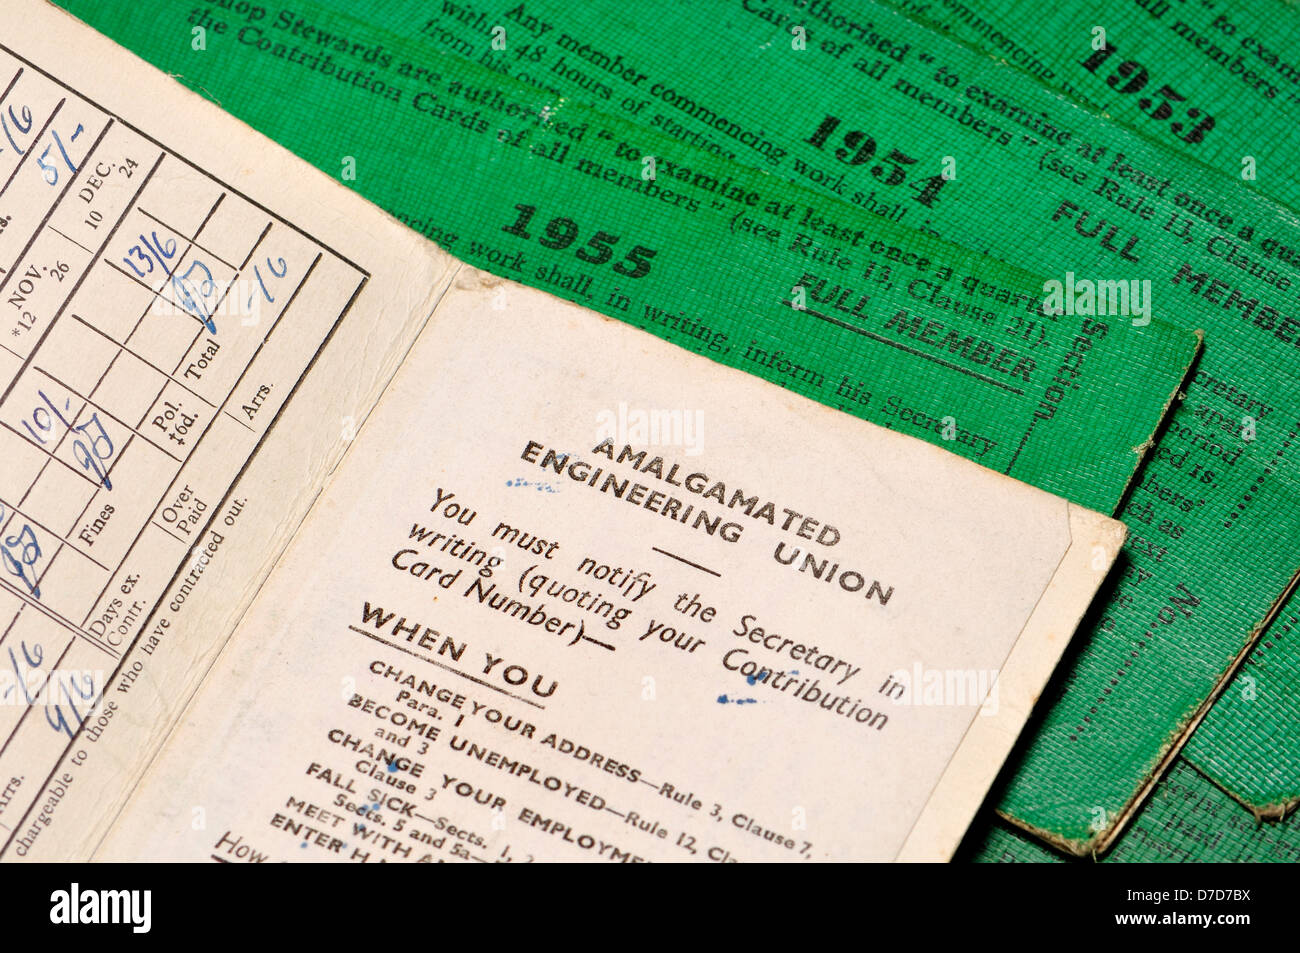 AMALGAMATED
ENGINEERING UNION
You must notify the Secretary in
writing (quoting your Contribution
Card Number)—
WHEN YOU
CHANGE YOUR ADDRESS—Rule 3, Clause 7,
Para. 1
BECOME UNEMPLOYED—Rule 12, Clause
and 3
CHANGE YOUR EMPLOYME
Clause 3
FALL SICK—Sects. 1, 3
Sects. 5 and 5a—
MEET WITH A
ENTER H
How
/6
5/-
DEC.
10 24
NOV.
*12 26
13/6
-/6
10/-
Total
Arrs.
Pol.
†6d.
Fines
Over
Paid
Days ex.
Contr.
-/6
9/6
Arrs.
chargeable to those who have contracted out.
hop Stewards are authorised "to examine at least once a quarter
the Contribution Cards of all members" (see Rule 13, Clause 21).
1955
FULL MEMBER
ncing work shall, in writing, inform his Secretary
Section
Any member commencing work shall, in
within 48 hours of starting
from his own
1954
FULL MEMBER
uthorised "to examine at least once a qua
Cards of all members" (see Rule 13, Clause
No
ecretary
apart
period
ed is
bers'
ch as
ext
1953
commencing
"to exam
all members
alamy
Image ID: D7D7BX
www.alamy.com